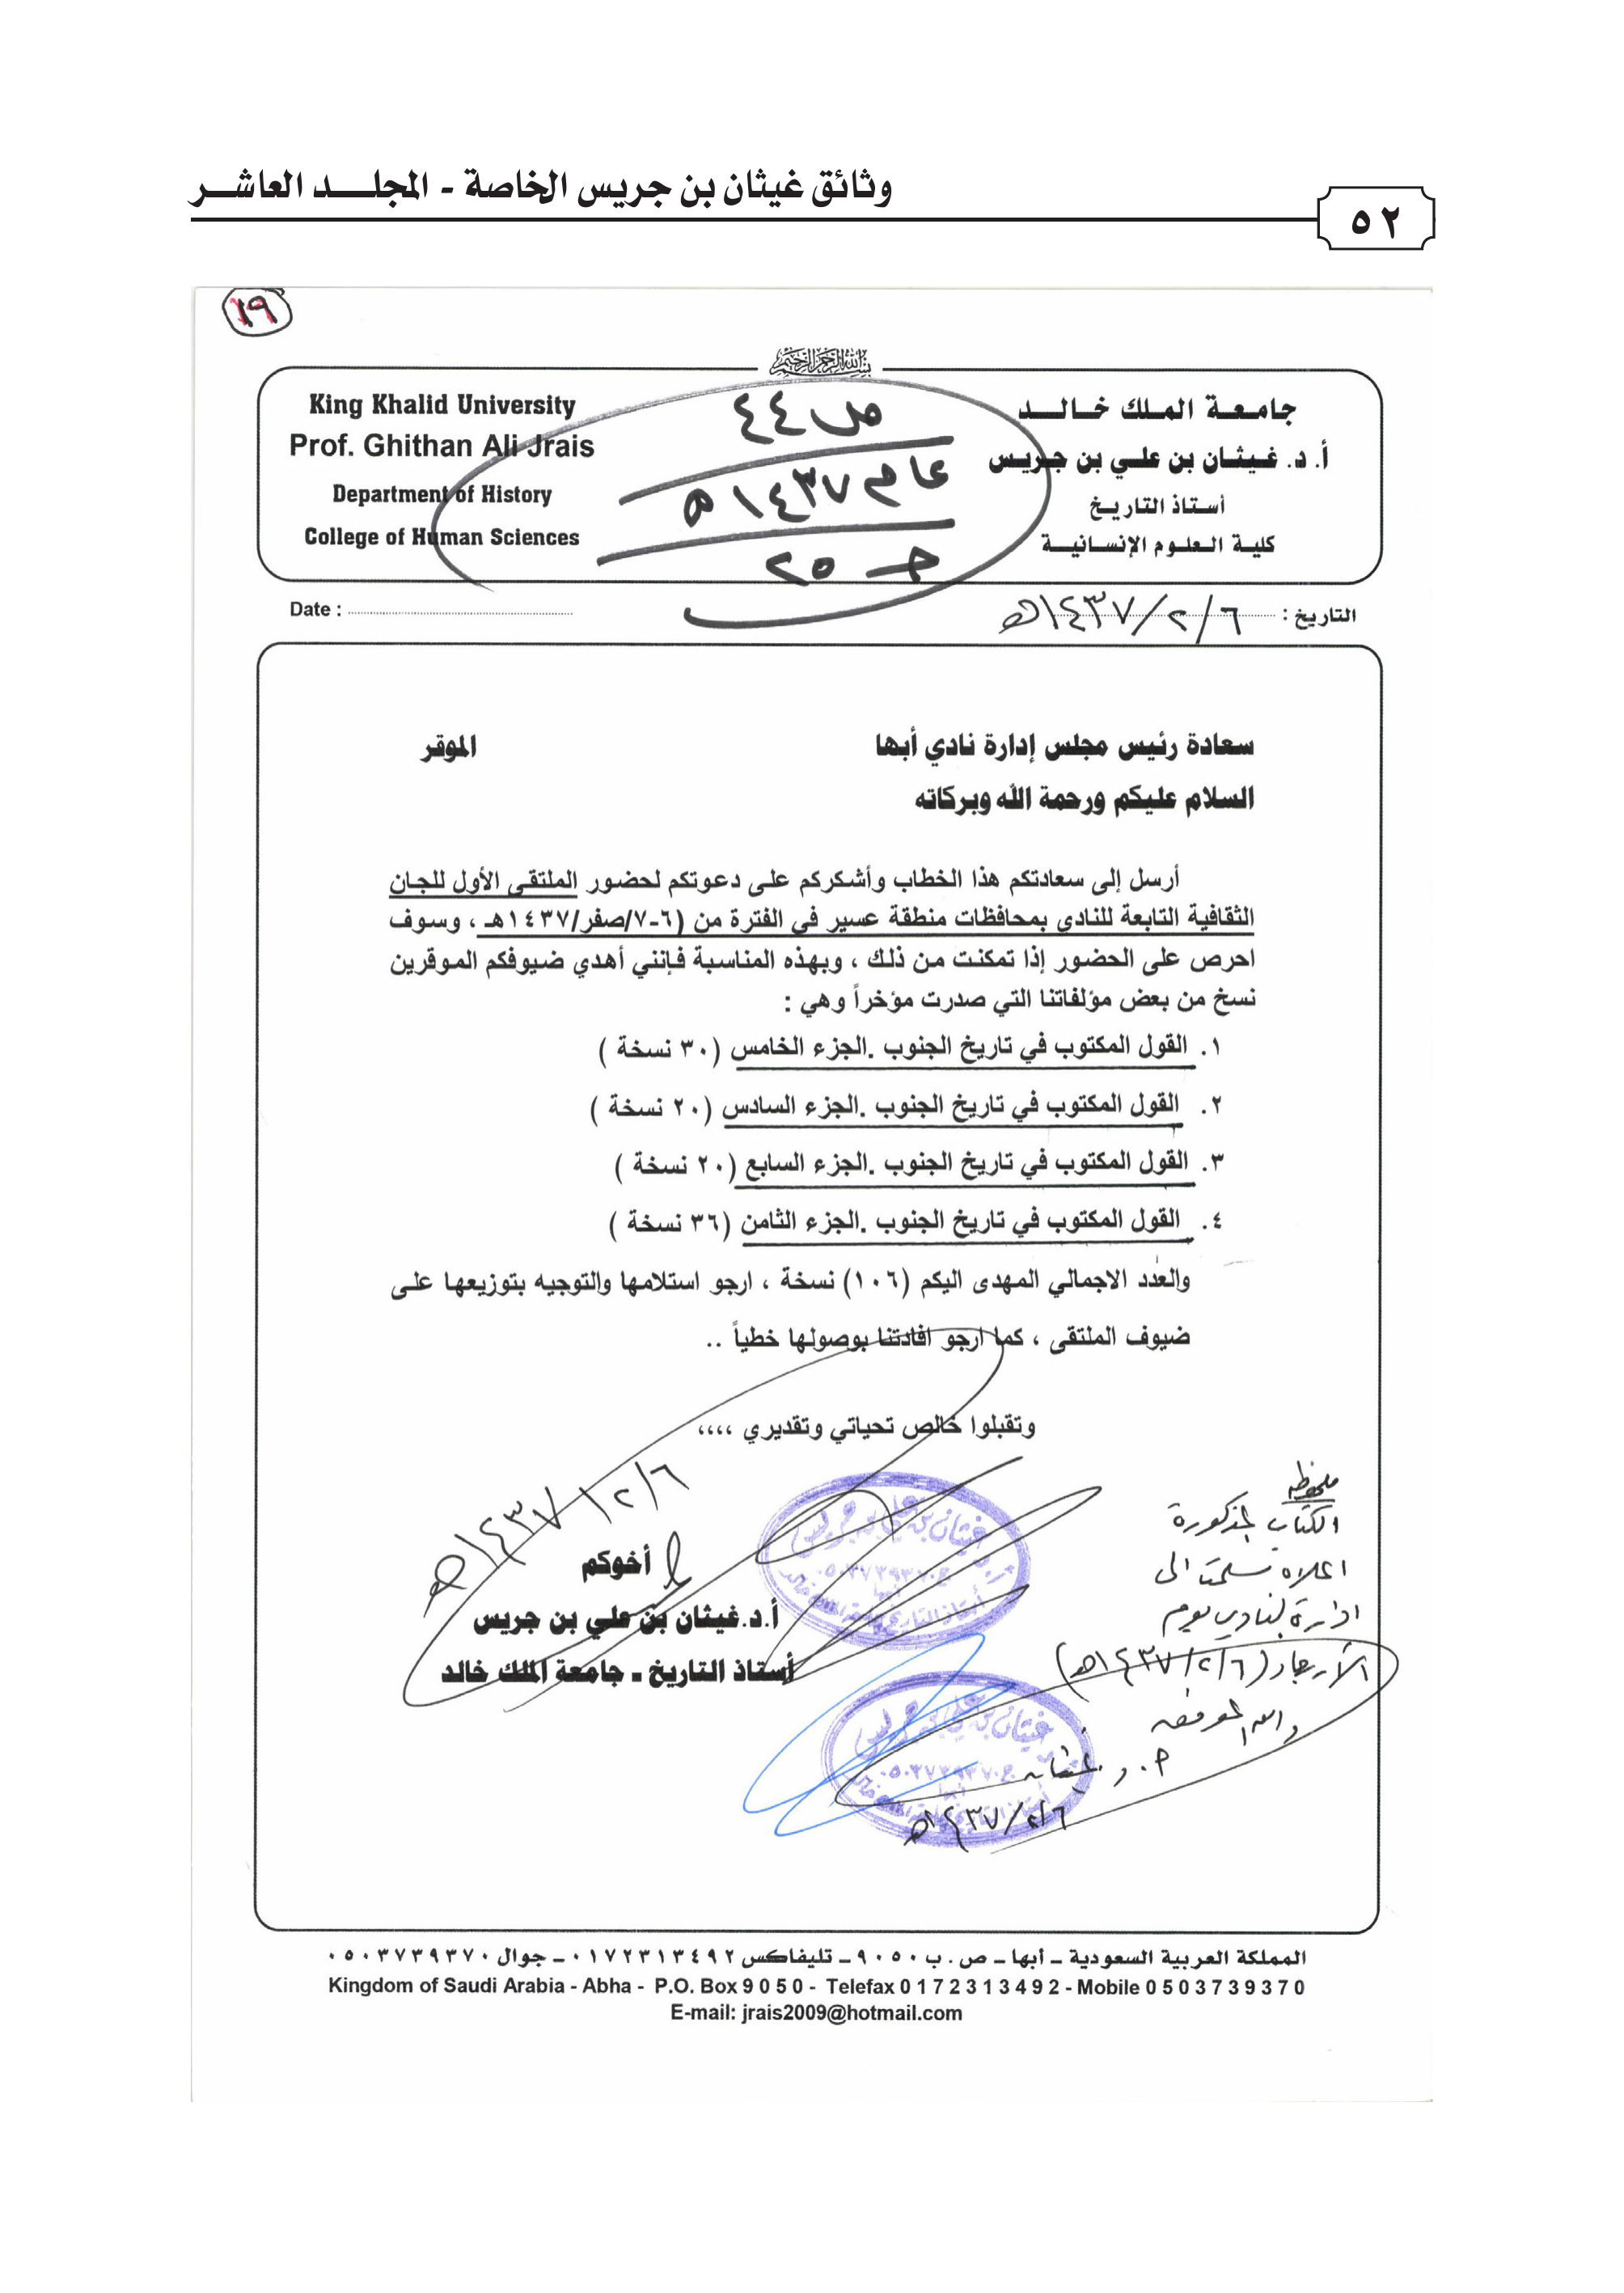 وثائق غيثان بن جريس الخاصة - المجلد العاشر
٥٢
١٩
بسم الله الرحمن الرحيم
جامعة الملك خالد
أ. د. غيثان بن علي بن جريس
أستاذ التاريخ
كلية العلوم الإنسانية
King Khalid University
Prof. Ghithan Ali Jrais
Department of History
College of Human Sciences
ص ٤٤
عام ١٤٣٧هـ
ج ٥٢
التاريخ : ٦/٢/١٤٣٧هـ
Date :
سعادة رئيس مجلس إدارة نادي أبها الموقر
السلام عليكم ورحمة الله وبركاته
أرسل إلى سعادتكم هذا الخطاب وأشكركم على دعوتكم لحضور الملتقى الأول للجان
الثقافية التابعة للنادي بمحافظات منطقة عسير في الفترة من (٦-٧/صفر/١٤٣٧هـ ، وسوف
احرص على الحضور إذا تمكنت من ذلك ، وبهذه المناسبة فإنني أهدي ضيوفكم الموقرين
نسخ من بعض مؤلفاتنا التي صدرت مؤخراً وهي :
١. القول المكتوب في تاريخ الجنوب .الجزء الخامس (٣٠ نسخة )
٢. القول المكتوب في تاريخ الجنوب .الجزء السادس (٢٠ نسخة )
٣. القول المكتوب في تاريخ الجنوب .الجزء السابع (٢٠ نسخة )
٤. القول المكتوب في تاريخ الجنوب .الجزء الثامن (٣٦ نسخة )
والعدد الاجمالي المهدى اليكم (١٠٦) نسخة ، ارجو استلامها والتوجيه بتوزيعها على
ضيوف الملتقى ، كما ارجو افادتنا بوصولها خطياً ..
وتقبلوا خالص تحياتي وتقديري ،،،،
٦/٢/١٤٣٧هـ
أخوكم
أ.د.غيثان بن علي بن جريس
أستاذ التاريخ ـ جامعة الملك خالد
ملحوظة
الكتب المذكورة
اعلاه سلمت الى
ادارة النادي يوم
الأربعاء (٦/٢/١٤٣٧هـ)
والله الموفق
أ. د. غيثان
٦/٢/١٤٣٧هـ
المملكة العربية السعودية – أبها – ص . ب ٩٠٥٠ – تليفاكس ٠١٧٢٣١٣٤٩٢ – جوال ٠٥٠٣٧٣٩٣٧٠
Kingdom of Saudi Arabia - Abha - P.O. Box 9 0 5 0 - Telefax 0 1 7 2 3 1 3 4 9 2 - Mobile 0 5 0 3 7 3 9 3 7 0
E-mail: jrais2009@hotmail.com